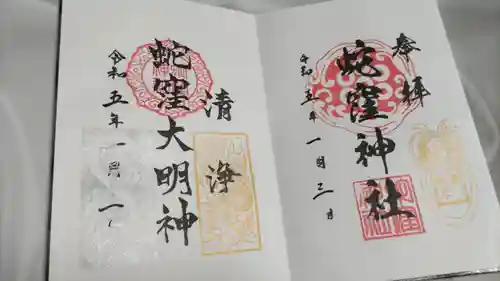 奉拝
蛇窪神社
令和五年一月三日
清浄
蛇窪大明神
令和五年一月一